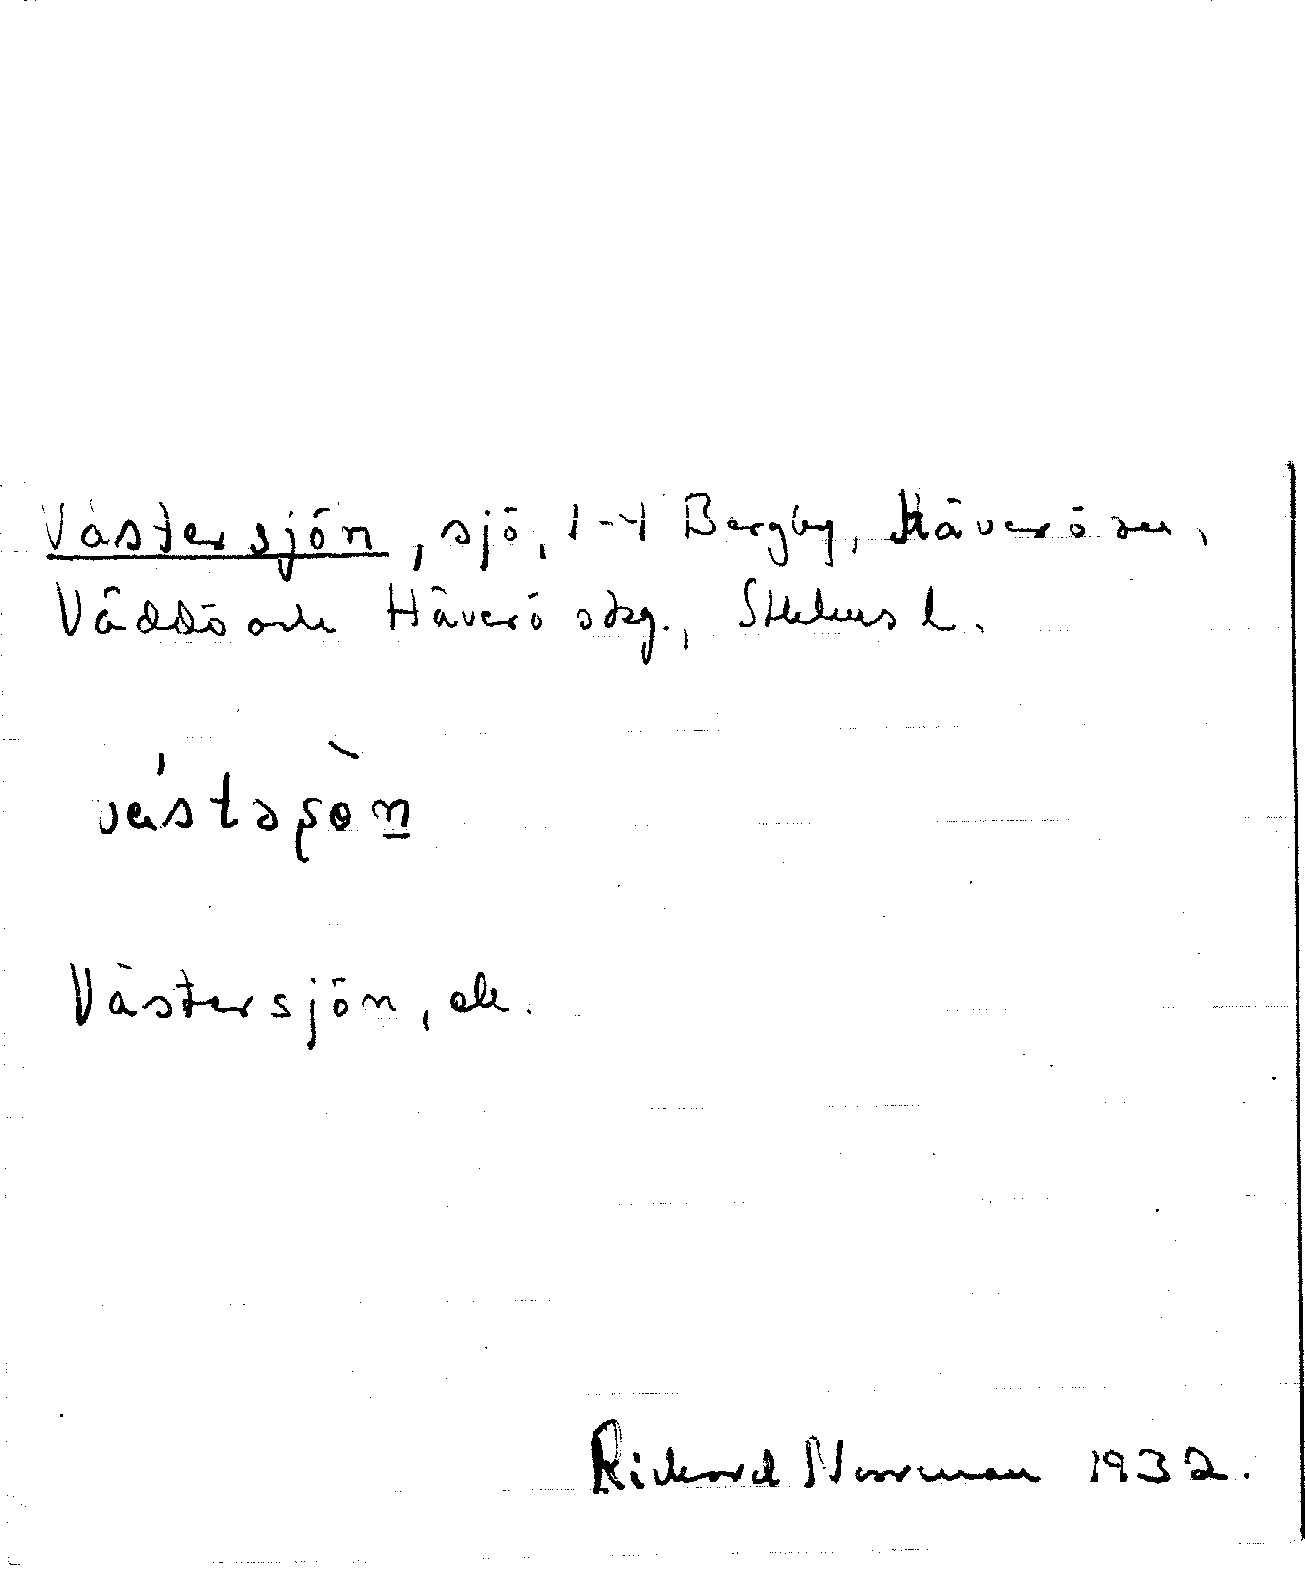 Västersjön, sjö, 1-4 Bergby, Häverö sn,
Väddö och Häverö skg., Sthlms l.
västaʂö̀n
Västersjön, ek.
Rickard Norrman 1932.